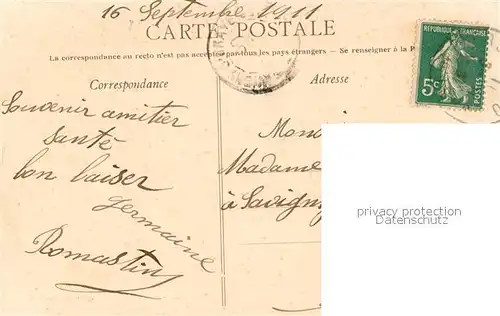 16 Septembre 1911
CARTE POSTALE
La correspondance au recto n'est pas acceptée par tous les pays étrangers — Se renseigner à la P
Correspondance
Adresse
RÉPUBLIQUE FRANÇAISE
5c
POSTES
Souvenir amitier
santé
bon baiser
germaine
Romastin
Mon
Madame
à Savigny
privacy protection
Datenschutz